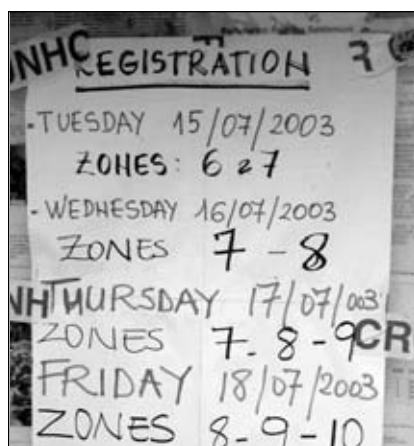 UNHC
REGISTRATION
- TUESDAY 15/07/2003
ZONES: 6 e 7
- WEDNESDAY 16/07/2003
ZONES 7 - 8
NH THURSDAY 17/07/003
ZONES 7. 8 - 9 CR
FRIDAY 18/07/2003
ZONES 8 - 9 - 10